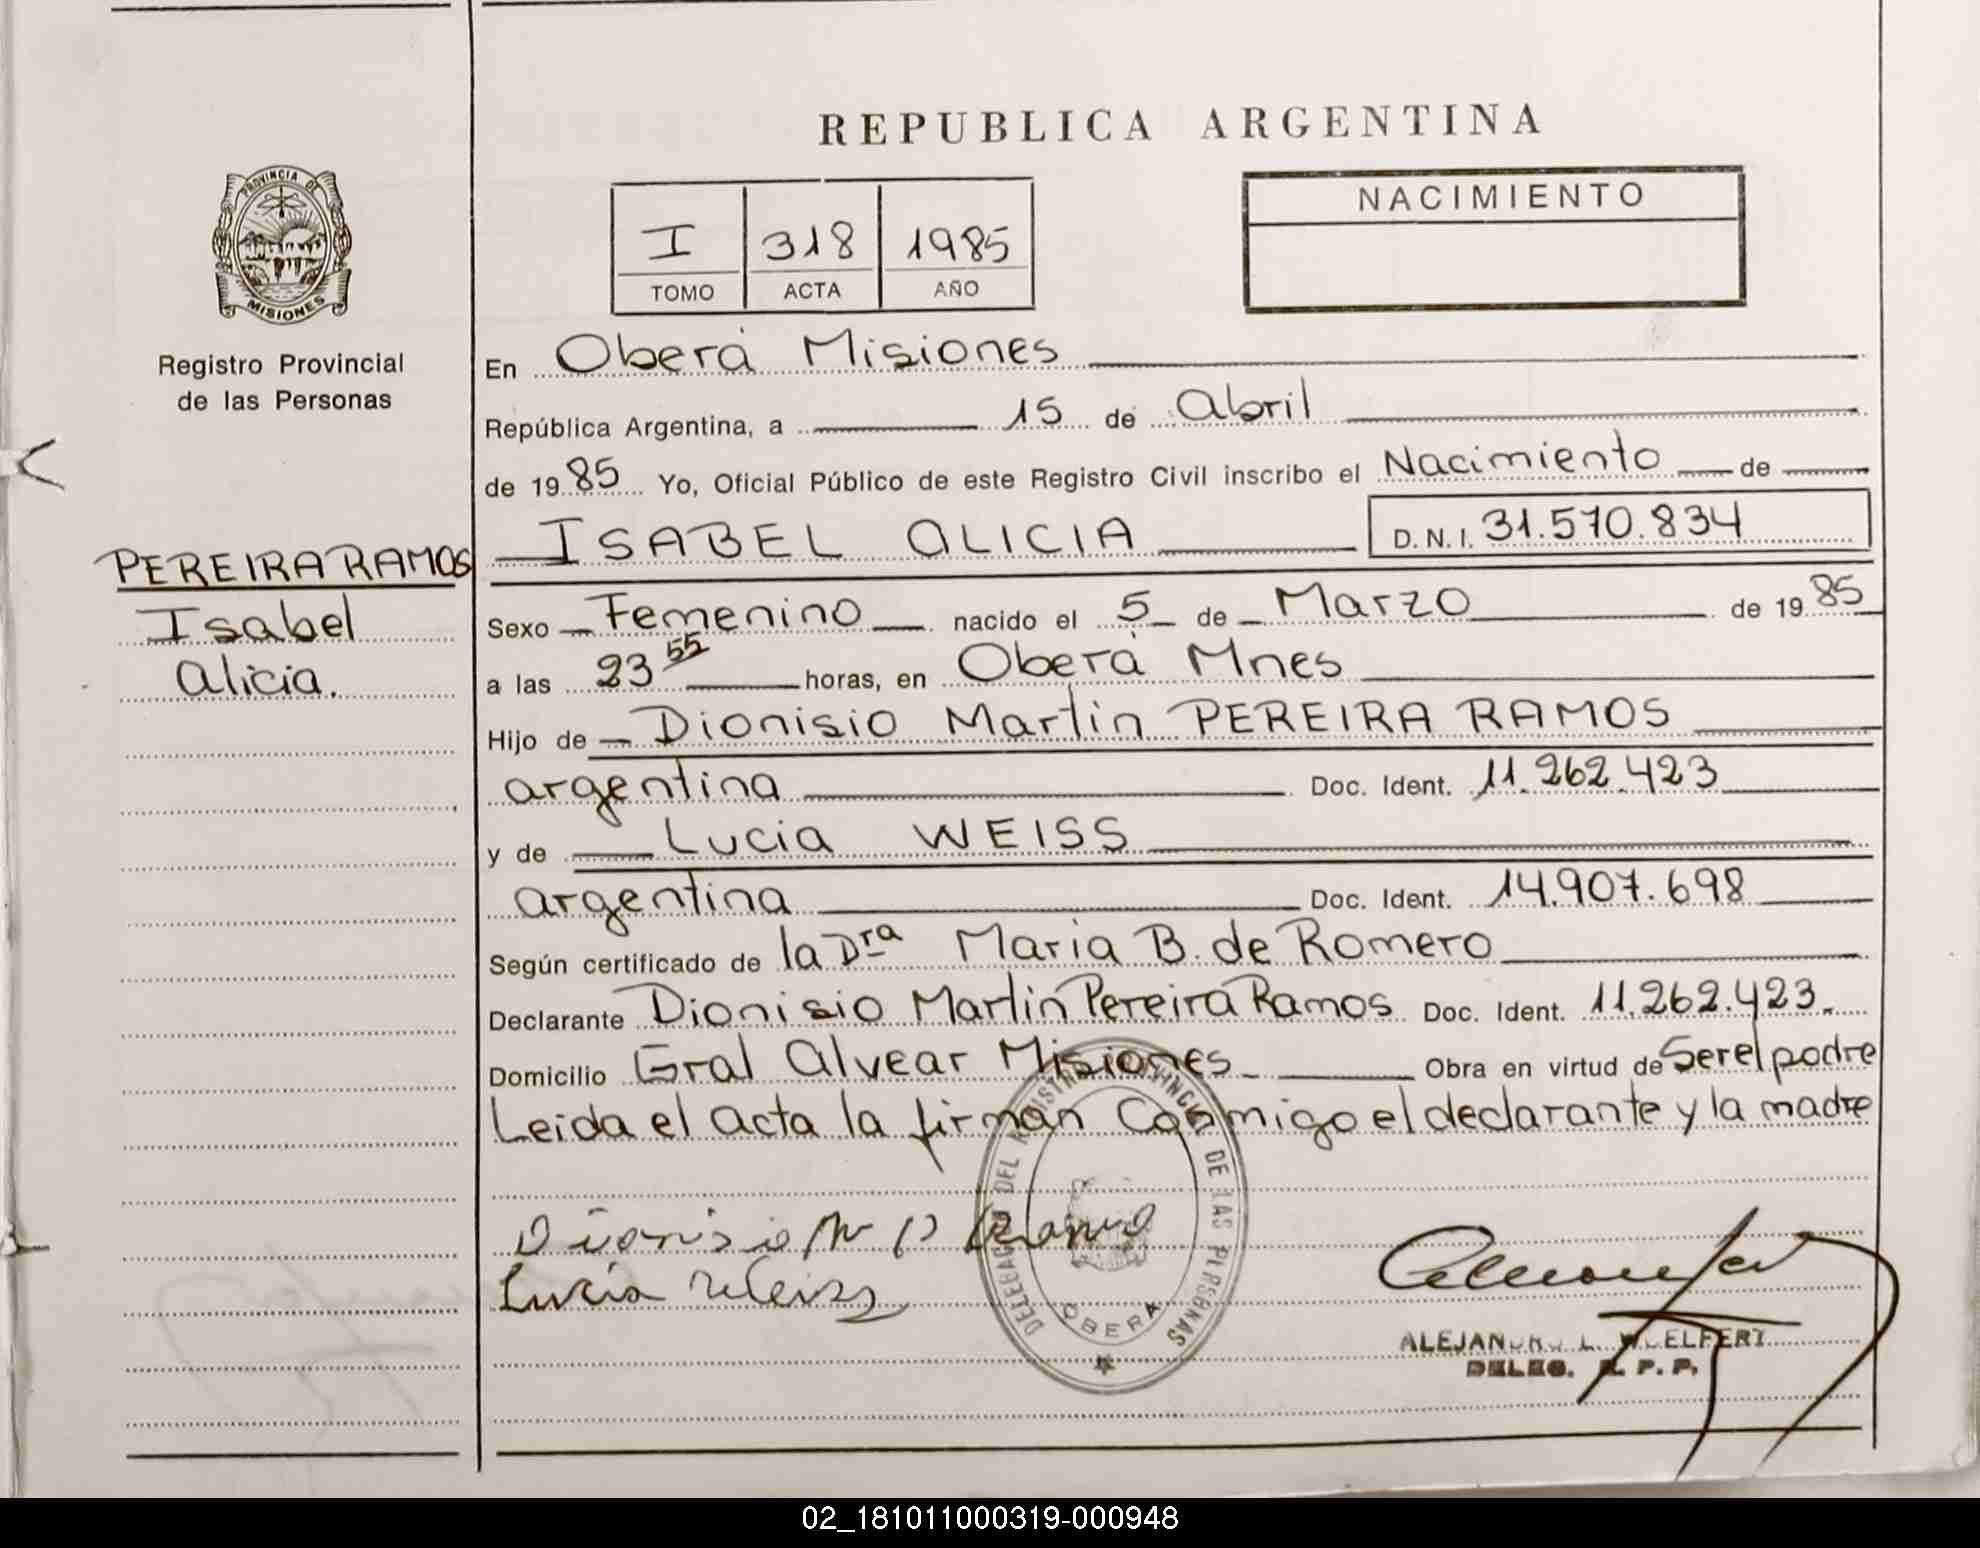 REPUBLICA ARGENTINA
PROVINCIA DE
MISIONES
Registro Provincial
de las Personas
I 318 1985
TOMO ACTA AÑO
NACIMIENTO
En Oberá Misiones
República Argentina, a 15 de Abril
de 1985 Yo, Oficial Público de este Registro Civil inscribo el Nacimiento de
ISABEL ALICIA D.N.I. 31.570.834
PEREIRA RAMOS
Isabel
Alicia.
Sexo Femenino nacido el 5 de Marzo de 1985
a las 23 55 horas, en Oberá Mnes
Hijo de Dionisio Martin PEREIRA RAMOS
argentina Doc. Ident. 11.262.423
y de Lucia WEISS
argentina Doc. Ident. 14.907.698
Según certificado de la Dra Maria B. de Romero
Declarante Dionisio Martin Pereira Ramos Doc. Ident. 11.262.423.
Domicilio Gral Alvear Misiones Obra en virtud de Ser el padre
Leida el acta la firman Conmigo el declarante y la madre
Dionisio M P Ramos
Lucia Weiss
DELEGACION DEL REGISTRO PROVINCIAL DE LAS PERSONAS
OBERA
ALEJANDRO L. WOELFERT
DELEG. R. P. P.
02_181011000319-000948